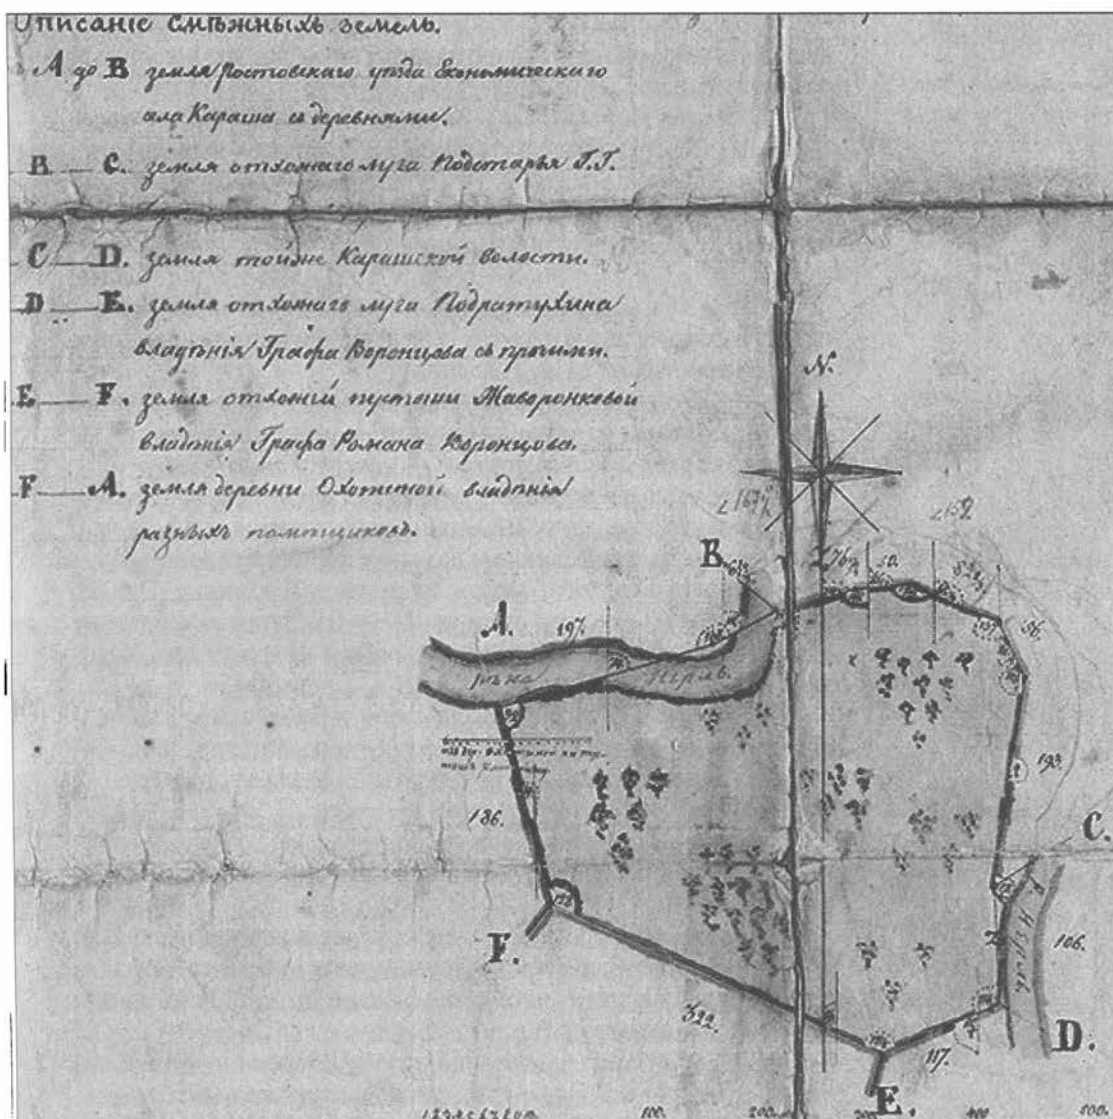 Описаніе смѣжныхъ земель.
А до В земля Ростовскаго уѣзда Економическаго
села Караша съ деревнями.
В — С. земля отхожаго луга Подстарья Г.Г.
С — D. земля тойже Карашской волости.
D — Е. земля отхожаго луга Подратухина
владѣнія Графа Воронцова съ прочими.
Е — F. земля отхожей пустоши Жаворонковой
владѣнія Графа Романа Воронцова.
F — А. земля деревни Охотиной владѣнія
разныхъ помѣщиковъ.
N.
В
76
50.
А.
197.
56.
рѣка
Нерль.
193.
186.
С.
р.
106.
F.
322.
117.
D.
Е.
100.
200.
300.
400.
500.